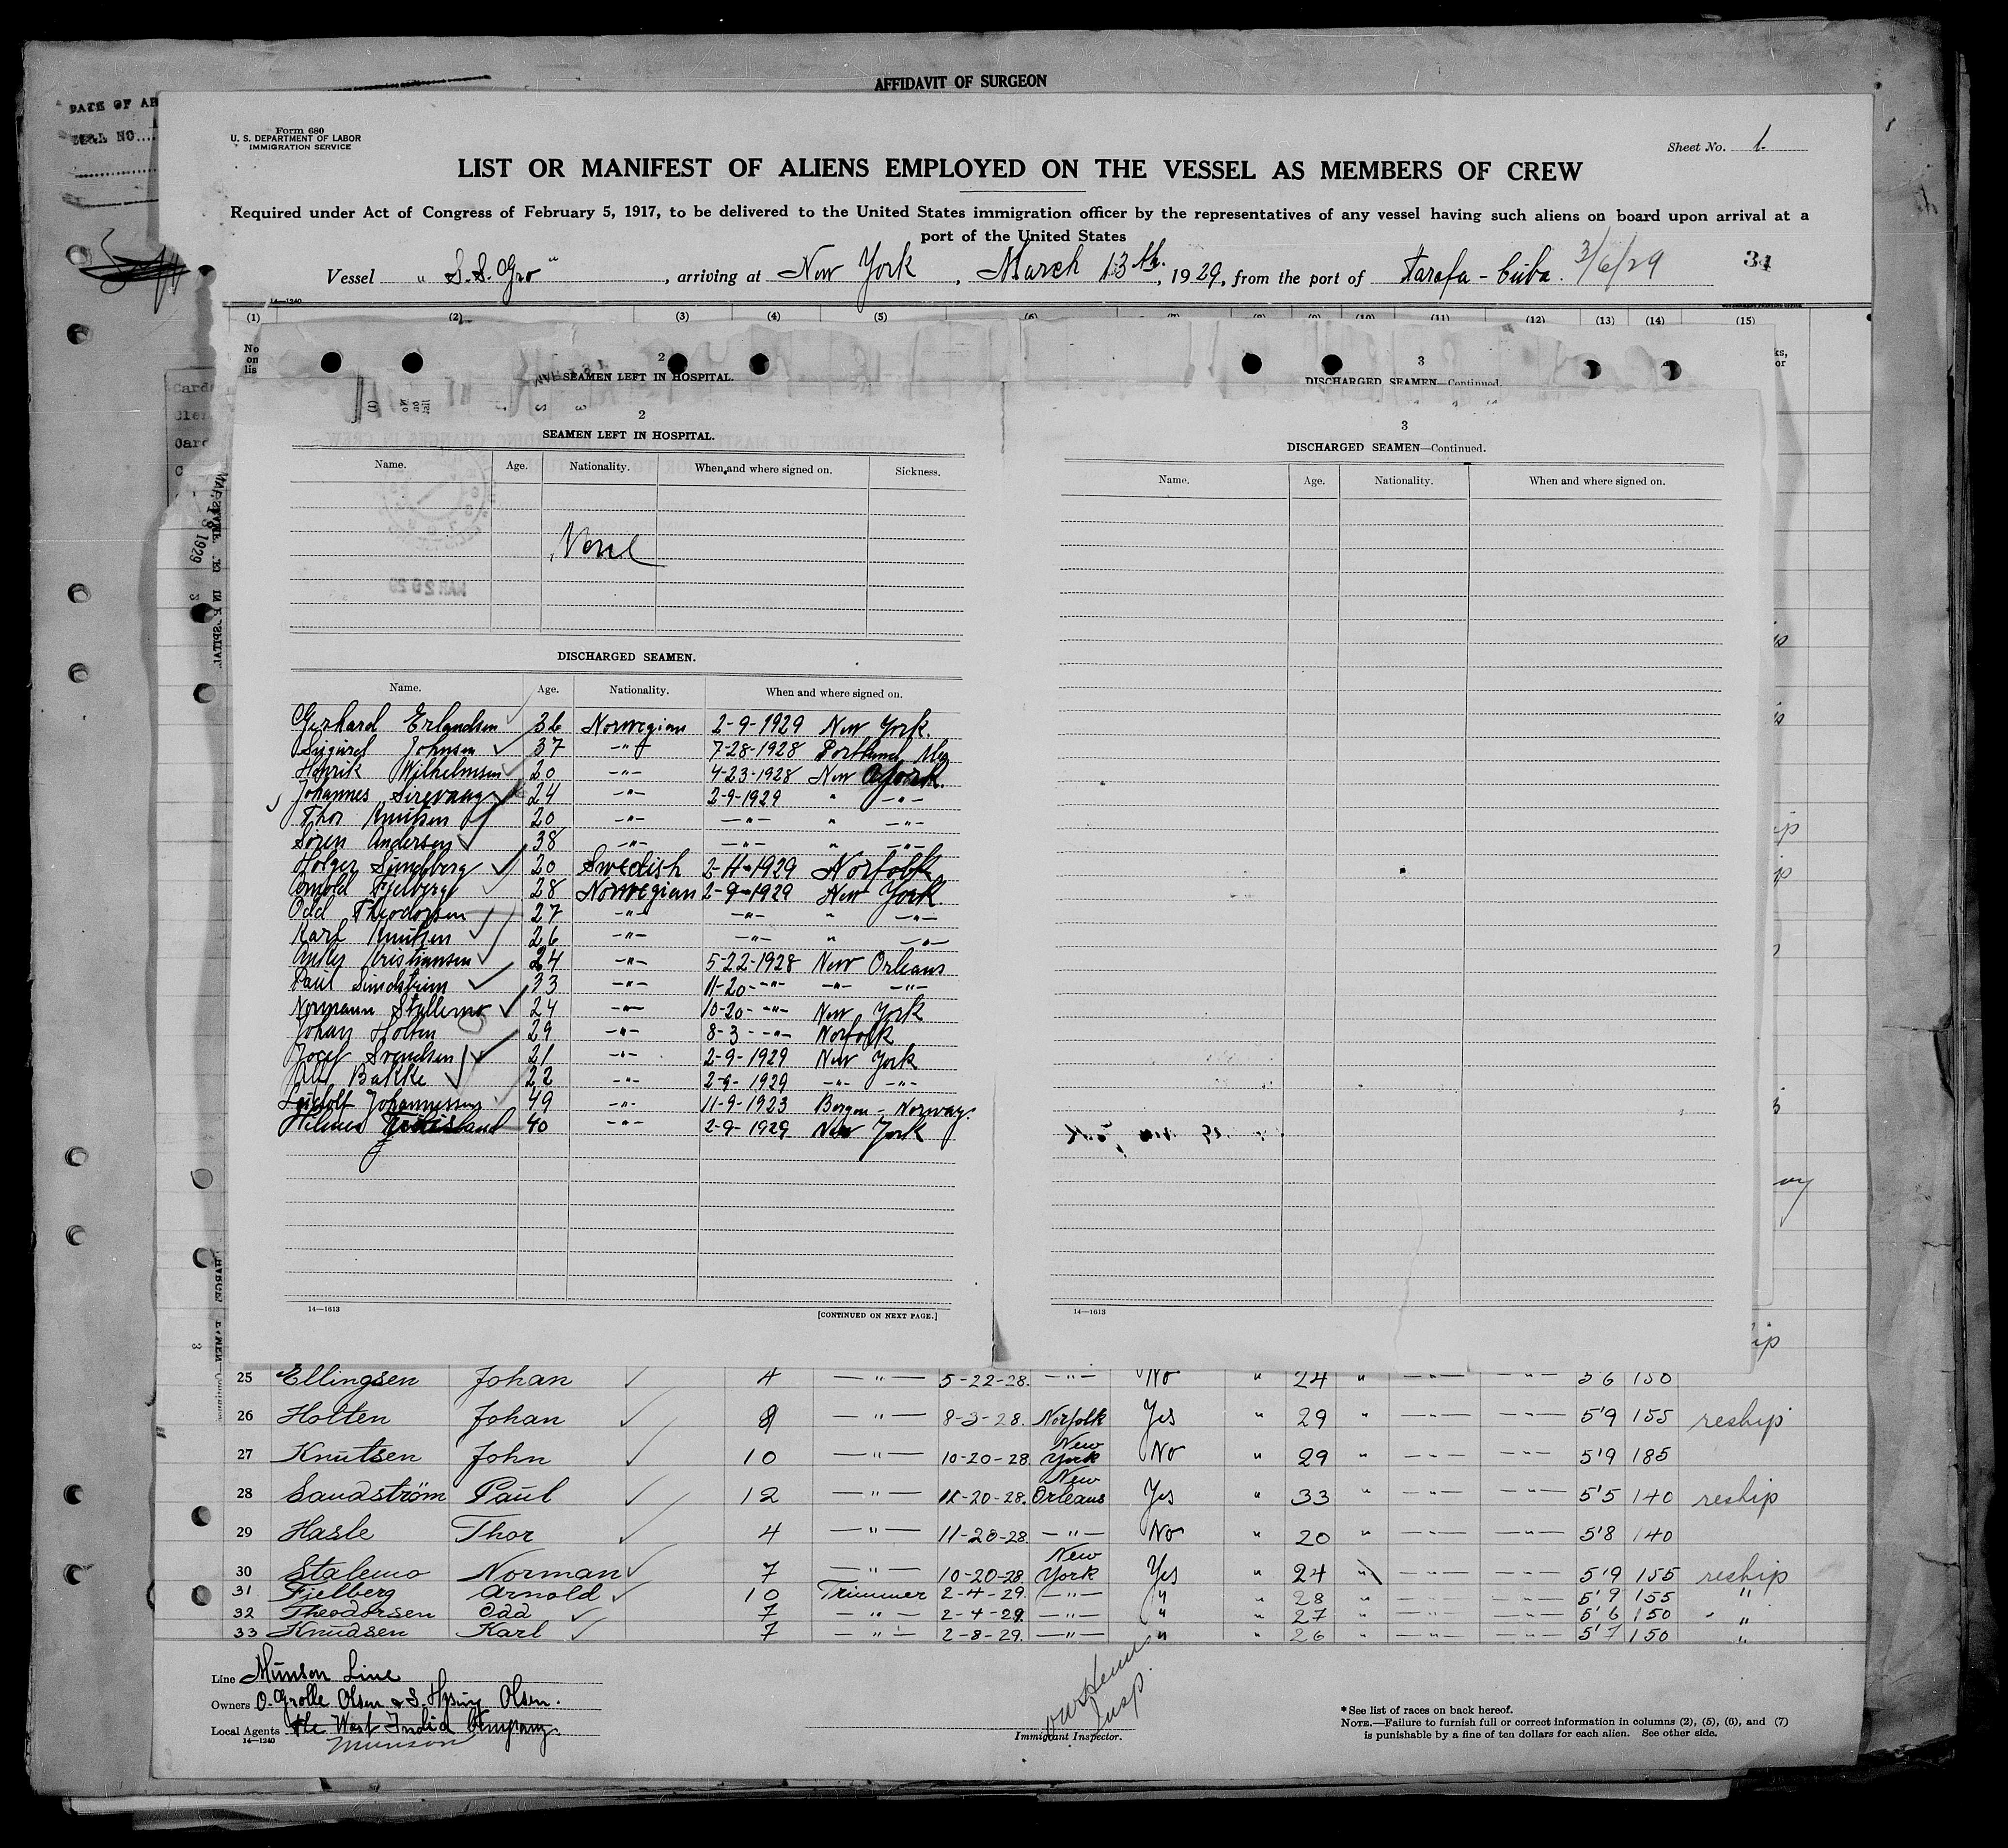 AFFIDAVIT OF SURGEON
DATE OF AR
SERIAL NO....
Form 680
U. S. DEPARTMENT OF LABOR
IMMIGRATION SERVICE
Sheet No. 1
LIST OR MANIFEST OF ALIENS EMPLOYED ON THE VESSEL AS MEMBERS OF CREW
Required under Act of Congress of February 5, 1917, to be delivered to the United States immigration officer by the representatives of any vessel having such aliens on board upon arrival at a
port of the United States
Vessel "S.S. Gro", arriving at New York, March 13th., 1929, from the port of Tarafa - Cuba. 3/6/29 34
14-1240
(1) (2) (3) (4) (5) (6) (7) (8) (9) (10) (11) (12) (13) (14) (15)
No
on
lis
2
SEAMEN LEFT IN HOSPITAL.
3
DISCHARGED SEAMEN—Continued.
2
SEAMEN LEFT IN HOSPITAL.
Name. Age. Nationality. When and where signed on. Sickness.
None
MAR 20 29
DISCHARGED SEAMEN.
Name. Age. Nationality. When and where signed on.
Gerhard Erlandsen 36 Norwegian 2-9-1929 New York.
Sigurd Johnsen 37 -"- 7-28-1928 Portland Me
Henrik Wilhelmsen 20 -"- 4-23-1928 New York.
Johannes Sirevaag 24 -"- 2-9-1929 " -"-
Thor Knutsen 20 -"- -"- " -"-
Sören Andersen 38 -"- -"- " -"-
Holger Sundberg 20 Swedish 2-4-1929 Norfolk
Arnold Fjelberg 28 Norwegian 2-9-1929 New York.
Odd Theodorsen 27 -"- -"- " -"-
Karl Knutsen 26 -"- -"- " -"-
Kristiansen 24 -"- 5-22-1928 New Orleans
Paul Sundström 33 -"- 11-20- -"- -"- -"-
Normann Stallemo 24 -"- 10-20- -"- New York
Johan Holten 29 -"- 8-3- -"- Norfolk
Josef Svendsen 21 -"- 2-9-1929 New York
Bakke 22 -"- 2-9-1929 -"- -"-
Leidolf Johannessen 49 -"- 11-9-1923 Bergen - Norway.
Hilmer 40 -"- 2-9-1929 New York
14—1613
[CONTINUED ON NEXT PAGE.]
3
DISCHARGED SEAMEN—Continued.
Name. Age. Nationality. When and where signed on.
14—1613
25 Ellingsen Johan 4 —"— 5-22-28. —"— No " 24 " —"— —"— 5'6 150
26 Holten Johan 8 —"— 8-3-28. Norfolk Yes " 29 " —"— —"— 5'9 155 reship
27 Knutsen John 10 —"— 10-20-28 New York No " 29 " —"— —"— 5'9 185
28 Sandström Paul 12 —"— 11-20-28. New Orleans Yes " 33 " —"— —"— 5'5 140 reship
29 Hasle Thor 4 —"— 11-20-28 —"— No " 20 " —"— —"— 5'8 140
30 Stalemo Norman 7 —"— 10-20-28 New York Yes " 24 " —"— —"— 5'9 155 reship
31 Fjelberg Arnold 10 Trimmer 2-4-29. —"— " " 28 " —"— —"— 5'9 155 "
32 Theodorsen Odd 7 —"— 2-4-29. —"— " " 27 " —"— —"— 5'6 150 "
33 Knudsen Karl 7 —"— 2-8-29. —"— " " 26 " —"— —"— 5'7 150 "
Line Munson Line
Owners O. Grolle Olsen & S. Olsen.
Local Agents The West India Company.
14—1240
Munson
Insp.
Immigrant Inspector.
*See list of races on back hereof.
NOTE.—Failure to furnish full or correct information in columns (2), (5), (6), and (7)
is punishable by a fine of ten dollars for each alien. See other side.